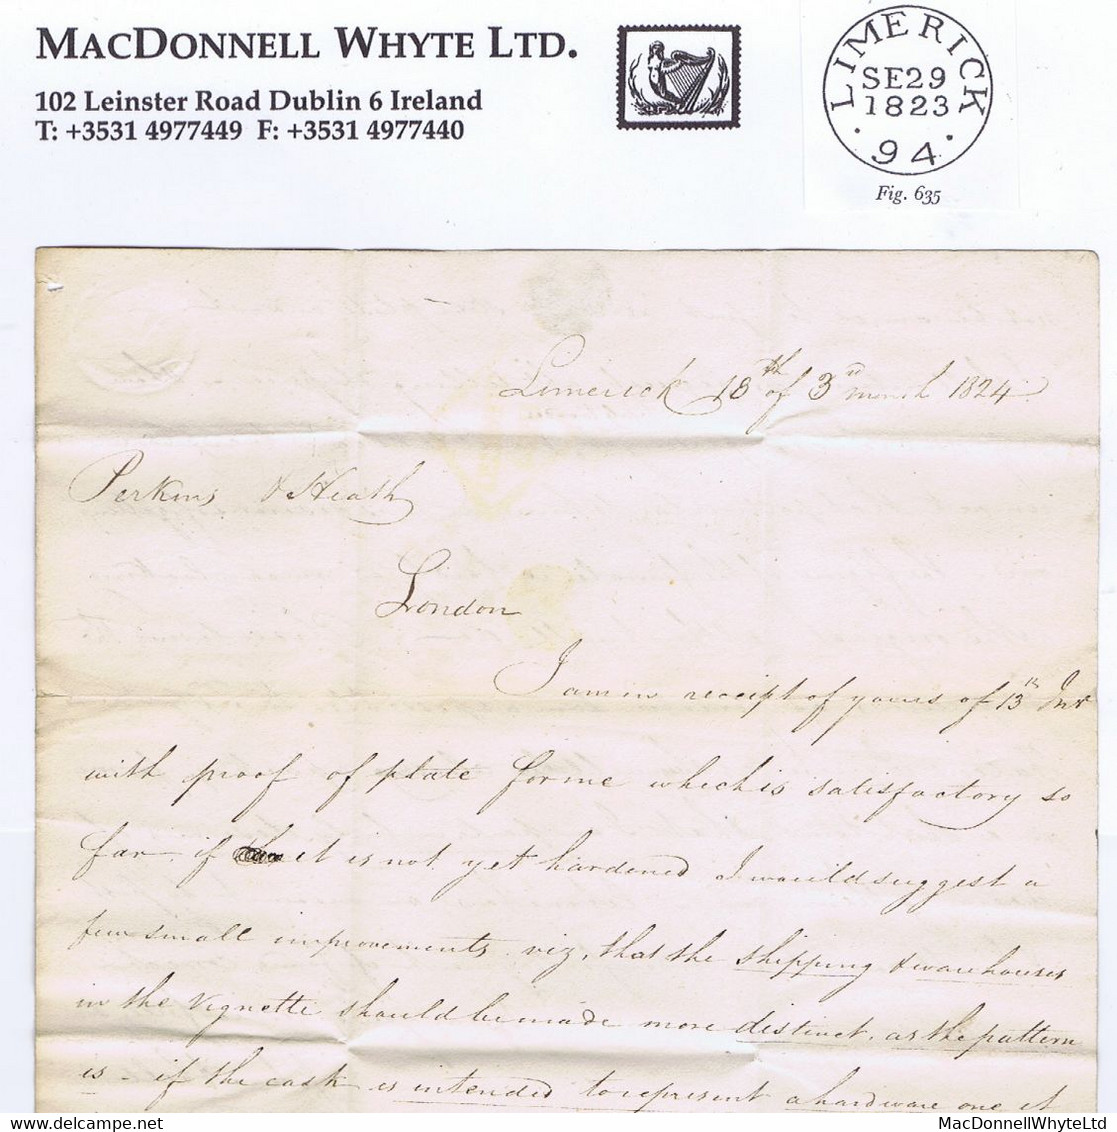 MACDONNELL WHYTE LTD.
102 Leinster Road Dublin 6 Ireland
T: +3531 4977449 F: +3531 4977440
LIMERICK
SE29
1823
· 94 ·
Fig. 635
Limerick 18th of 3rd month 1824
Perkins & Heath
London
I am in receipt of yours of 13th Inst
with proof of plate for me which is satisfactory so
far. if it is not yet hardened I would suggest a
few small improvements viz, that the shipping & warehouses
in the vignette should be made more distinct, as the pattern
is - if the cask is intended to represent a hardware one it
MacDonnellWhyteLtd